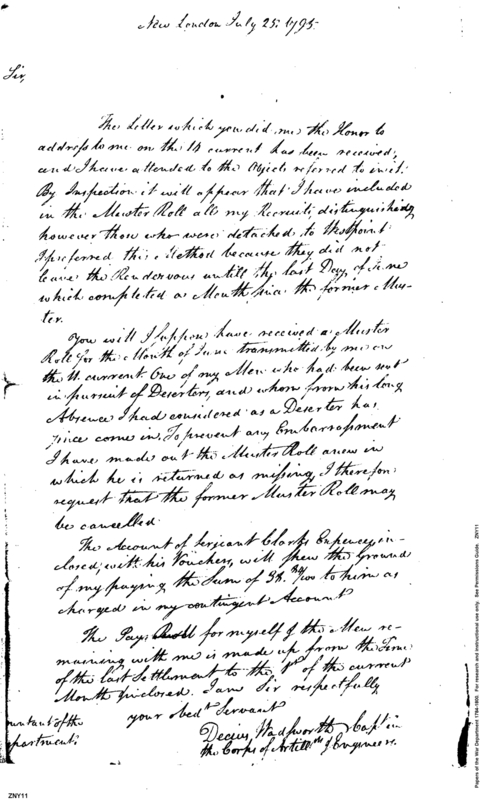 New London July 25: 1795.
Sir,
The Letter which you did me the Honor to
address to me on the 14 current has been received,
and I have attended to the Objects referred to in it.
By Inspection it will appear that I have included
in the Muster Roll all my Recruits, distinguishing
however those who were detached to Westpoint
I preferred this Method because they did not
leave the Rendezvous untill the last Day of June
which completed a Month since the former Mus-
ter.
You will I suppose have received a Muster
Roll for the Month of June transmitted by me on
the 11. current. One of my Men who had been sent
in pursuit of Deserters, and whom from his long
Absence I had considered as a Deserter has
since come in. To prevent any Embarrassment
I have made out the Muster Roll anew in
which he is returned as missing, I therefore
request that the former Muster Roll may
be cancelled.
The Account of Serjeant Clarks Expences, in-
closed, with his Vouchers, will shew the Ground
of my paying the Sum of to him as
charged in my contingent Account
The Pay Roll for myself & the Men re-
maining with me is made up from the Time
of the last Settlement to the 1st of the current
Month inclosed. I am Sir respectfully
your obedt Servant
Decius Wadsworth Captn in
the Corps of Artillsts & Engineers.
ountant of the
partment.
ZNY11
Papers of the War Department 1784-1800. For research and instructional use only. See Permissions Guide. ZNY11